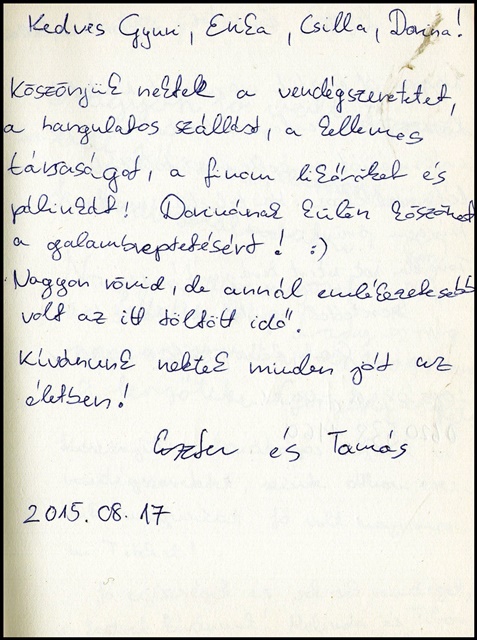 Kedves Gyuri, Erika, Csilla, Dorina!
Köszönjük nektek a vendégszeretetet,
a hangulatos szállást, a kellemes
társaságot, a finom likőröket és
pálinkát! Dorinának külön köszönet
a galambreptetésért! :)
Nagyon rövid, de annál emlékezetesebb
volt az itt töltött idő".
Kívánunk nektek minden jót az
életben!
Eszter és Tamás
2015. 08. 17